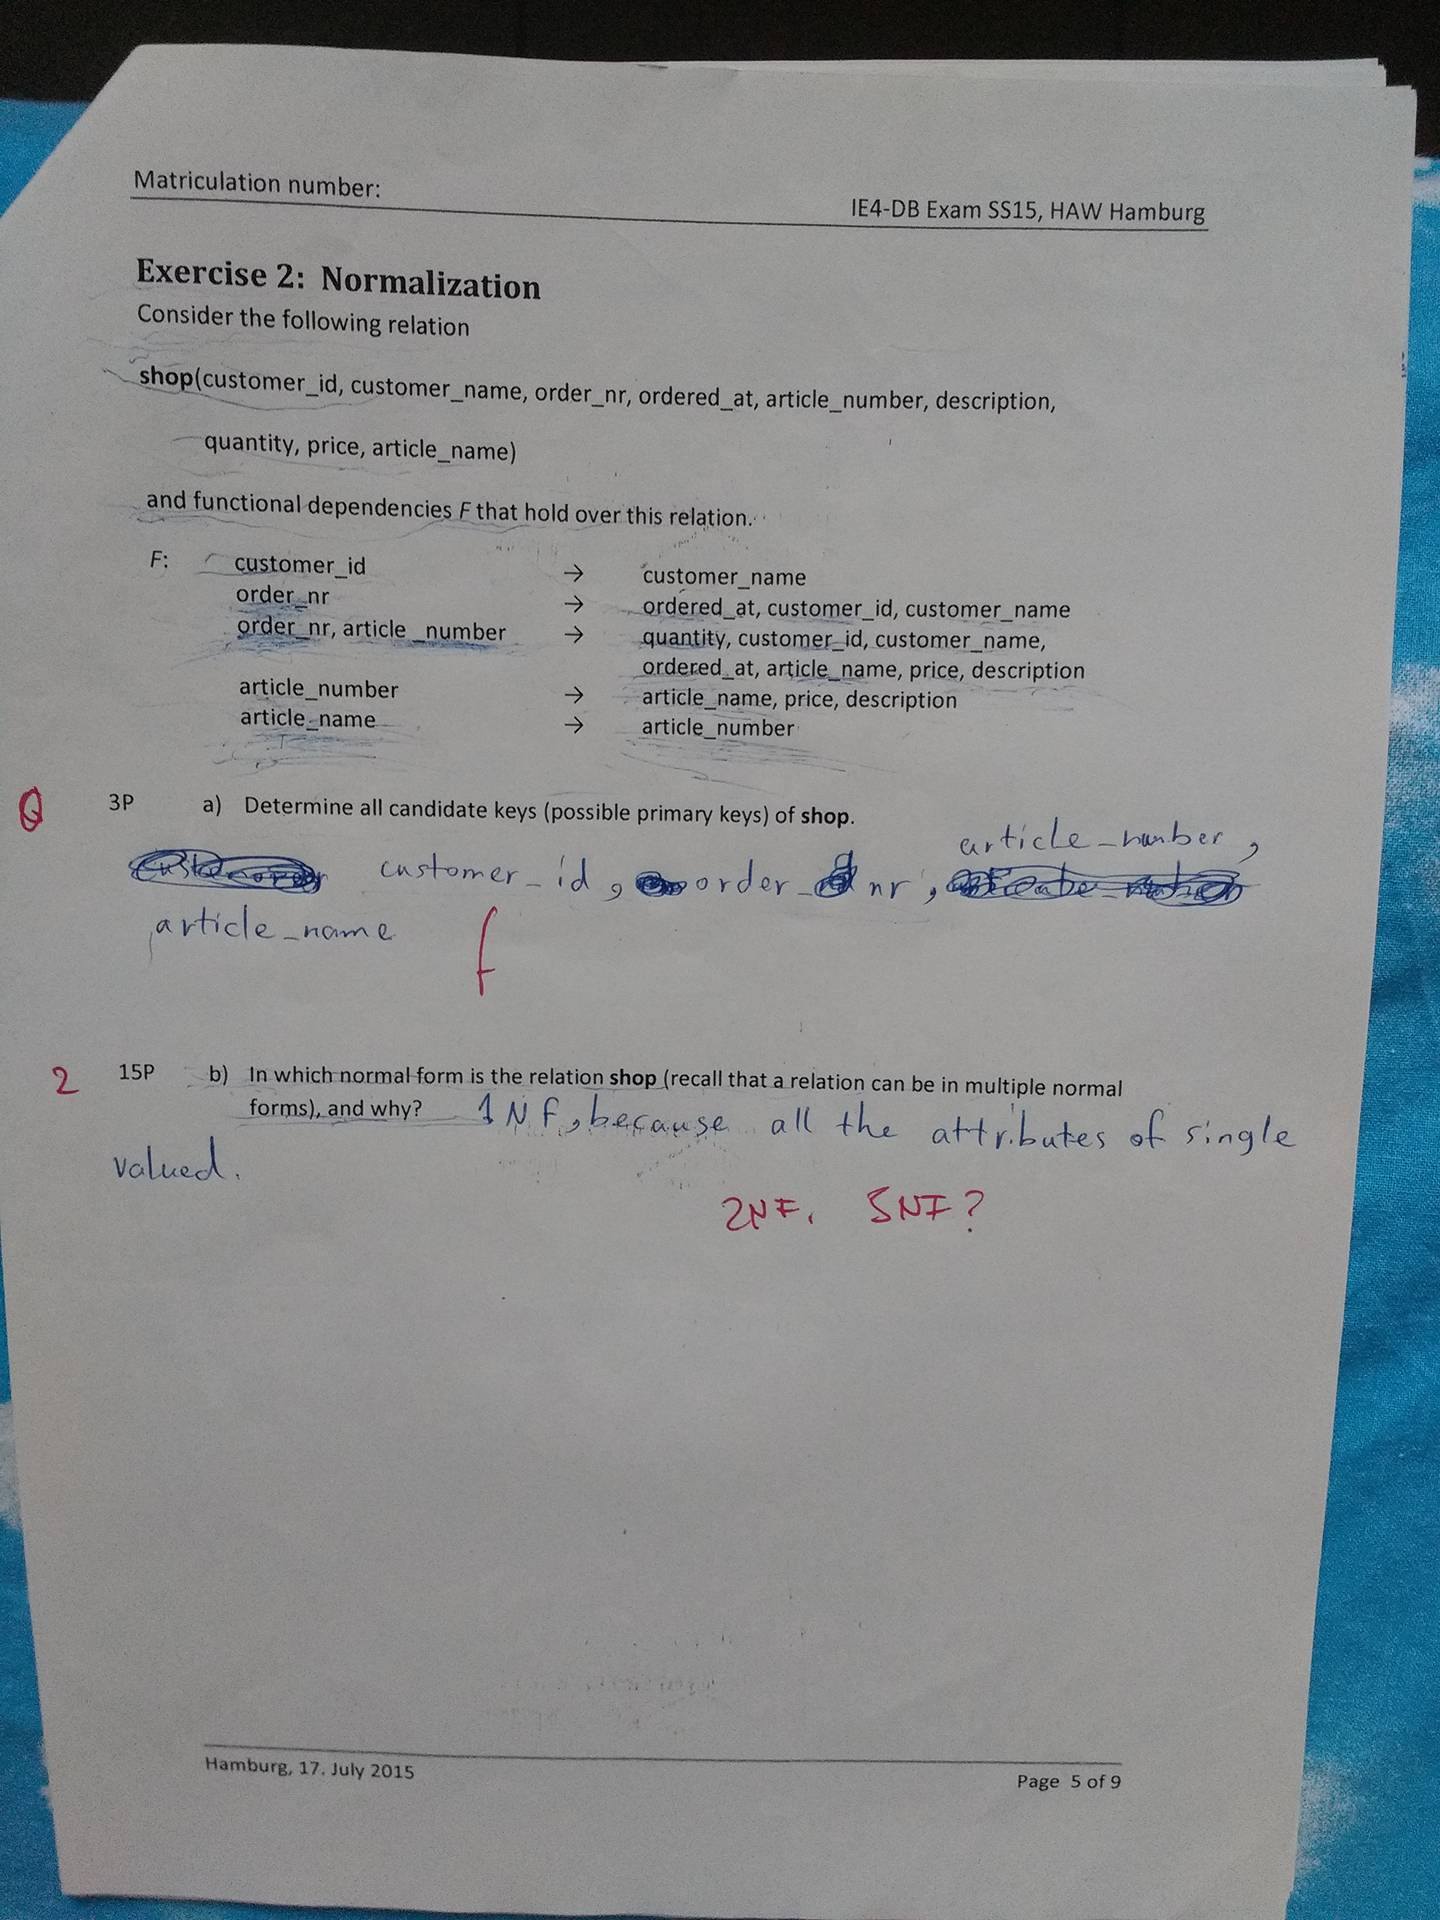 Matriculation number:
IE4-DB Exam SS15, HAW Hamburg
Exercise 2: Normalization
Consider the following relation
shop(customer_id, customer_name, order_nr, ordered_at, article_number, description,
quantity, price, article_name)
and functional dependencies F that hold over this relation.
F: customer_id → customer_name
order_nr → ordered_at, customer_id, customer_name
order_nr, article _number → quantity, customer_id, customer_name,
ordered_at, article_name, price, description
article_number → article_name, price, description
article_name → article_number
3P a) Determine all candidate keys (possible primary keys) of shop.
customer_id, order_nr, article_number,
article_name
f
2 15P b) In which normal form is the relation shop (recall that a relation can be in multiple normal
forms), and why? 1NF, because all the attributes of single
valued.
2NF, 5NF?
Hamburg, 17. July 2015
Page 5 of 9